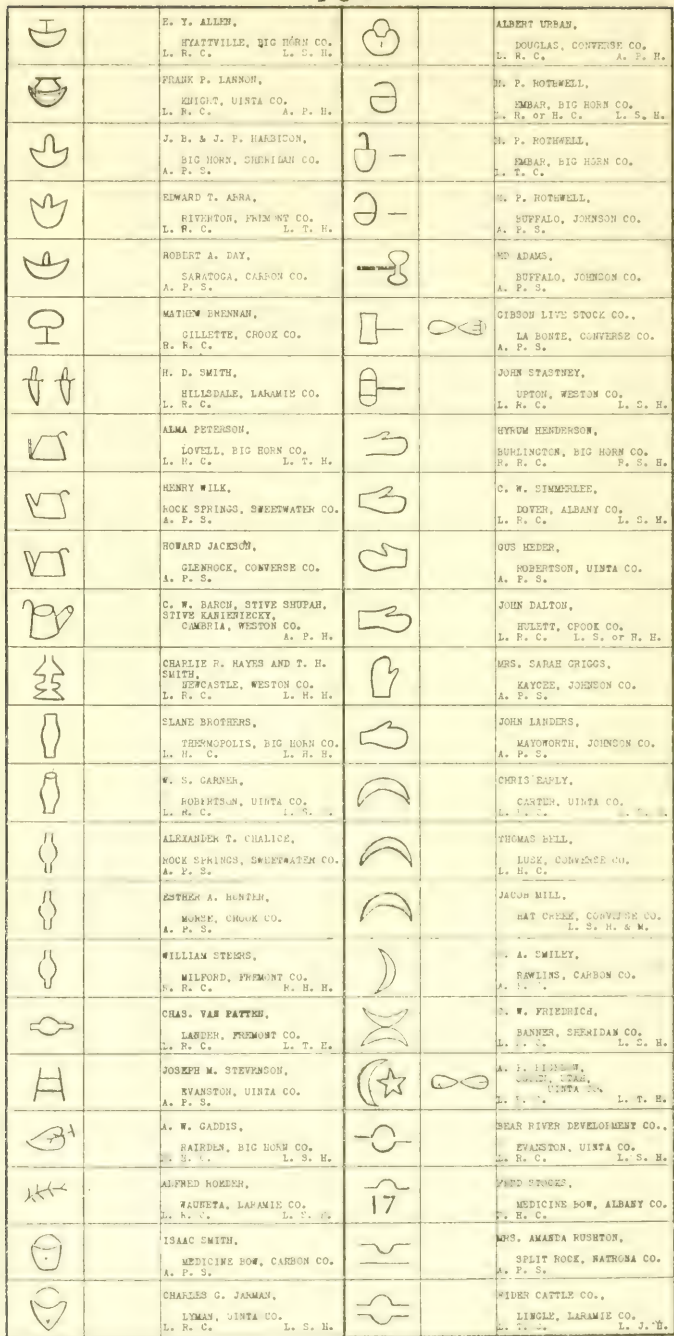 E. Y. ALLEN,
HYATTVILLE, BIG HORN CO.
L. R. C. L. S. H.
FRANK P. LANNON,
KNIGHT, UINTA CO.
L. R. C. A. P. H.
J. B. & J. P. HARBISON,
BIG HORN, SHERIDAN CO.
A. P. S.
EDWARD T. ABRA,
RIVERTON, FREMONT CO.
L. R. C. L. T. H.
ROBERT A. DAY,
SARATOGA, CARBON CO.
A. P. S.
MATHEW BRENNAN,
GILLETTE, CROOK CO.
R. R. C.
H. D. SMITH,
HILLSDALE, LARAMIE CO.
L. R. C.
ALMA PETERSON,
LOVELL, BIG HORN CO.
L. R. C. L. T. H.
HENRY WILK,
ROCK SPRINGS, SWEETWATER CO.
A. P. S.
HOWARD JACKSON,
GLENROCK, CONVERSE CO.
A. P. S.
C. W. BARON, STIVE SHUPAH,
STIVE KANIENIECKY,
CAMBRIA, WESTON CO.
A. P. H.
CHARLIE R. HAYES AND T. H.
SMITH,
NEWCASTLE, WESTON CO.
L. R. C. L. H. H.
SLANE BROTHERS,
THERMOPOLIS, BIG HORN CO.
L. H. C. L. H. H.
W. S. GARNER,
ROBERTSON, UINTA CO.
L. R. C. L. S.
ALEXANDER T. CHALICE,
ROCK SPRINGS, SWEETWATER CO.
A. P. S.
ESTHER A. HUNTER,
MORSE, CROOK CO.
A. P. S.
WILLIAM STEERS,
MILFORD, FREMONT CO.
R. R. C. R. H. H.
CHAS. VAN PATTEN,
LANDER, FREMONT CO.
L. R. C. L. T. H.
JOSEPH M. STEVENSON,
EVANSTON, UINTA CO.
A. P. S.
A. W. GADDIS,
RAIRDEN, BIG HORN CO.
L. S. H.
ALFRED ROEDER,
WAUNETA, LARAMIE CO.
ISAAC SMITH,
MEDICINE BOW, CARBON CO.
A. P. S.
CHARLES G. JARMAN,
LYMAN, UINTA CO.
L. R. C. L. S. H.
ALBERT URBAN,
DOUGLAS, CONVERSE CO.
L. R. C. A. P. H.
P. ROTHWELL,
EMBAR, BIG HORN CO.
L. R. or H. C. L. S. H.
P. ROTHWELL,
EMBAR, BIG HORN CO.
L. T. C.
P. ROTHWELL,
BUFFALO, JOHNSON CO.
A. P. S.
ED ADAMS,
BUFFALO, JOHNSON CO.
A. P. S.
GIBSON LIVE STOCK CO.,
LA BONTE, CONVERSE CO.
A. P. S.
JOHN STASTNEY,
UPTON, WESTON CO.
L. R. C. L. S. H.
HYRUM HENDERSON,
BURLINGTON, BIG HORN CO.
R. R. C. R. S. H.
C. W. SIMMERLEE,
DOVER, ALBANY CO.
L. R. C. L. S. H.
GUS HEDER,
ROBERTSON, UINTA CO.
A. P. S.
JOHN DALTON,
HULETT, CROOK CO.
L. R. C. L. S. or H. H.
MRS. SARAH GRIGGS,
KAYCEE, JOHNSON CO.
A. P. S.
JOHN LANDERS,
MAYOWORTH, JOHNSON CO.
A. P. S.
CHRIS EARLY,
CARTER, UINTA CO.
THOMAS BELL,
LUSK, CONVERSE CO.
L. H. C.
JACOB MILL,
HAT CREEK, CONVERSE CO.
L. S. H. & M.
A. SMILEY,
RAWLINS, CARBON CO.
W. FRIEDRICH,
BANNER, SHERIDAN CO.
L. S. H.
UINTA CO.
L. T. H.
BEAR RIVER DEVELOPMENT CO.,
EVANSTON, UINTA CO.
L. R. C. L. S. H.
17
STOCKS,
MEDICINE BOW, ALBANY CO.
H. C.
MRS. AMANDA RUSHTON,
SPLIT ROCK, NATRONA CO.
A. P. S.
CATTLE CO.,
LINGLE, LARAMIE CO.